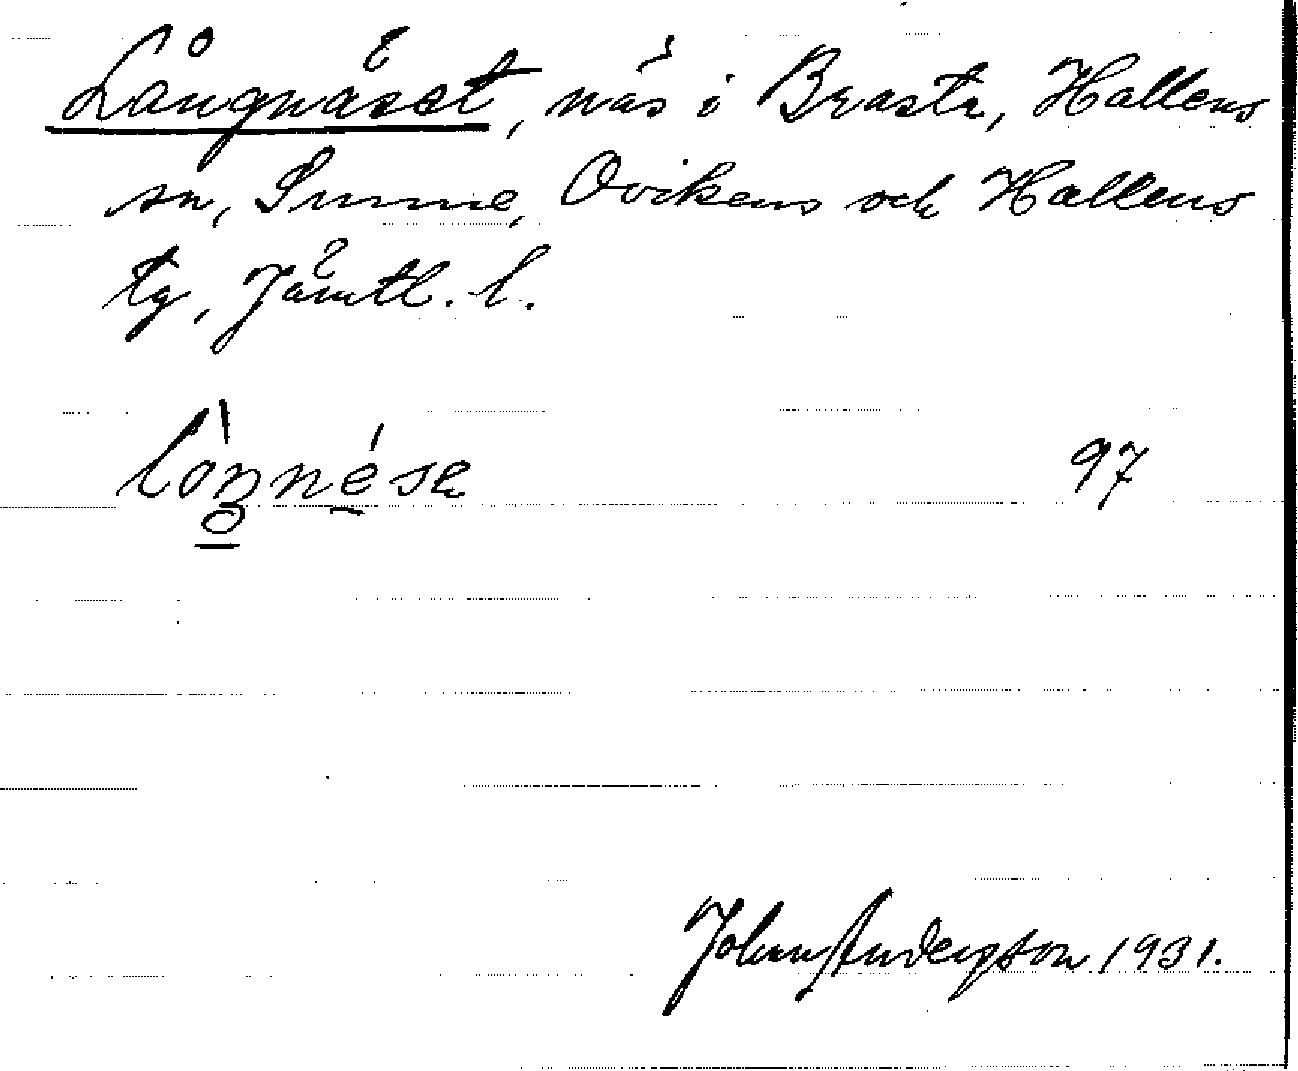 Långnäset, näs i Brasta, Hallens
sn, Sunne, Ovikens och Hallens
tg, Jämtl. l.
97
John Andersson 1931.